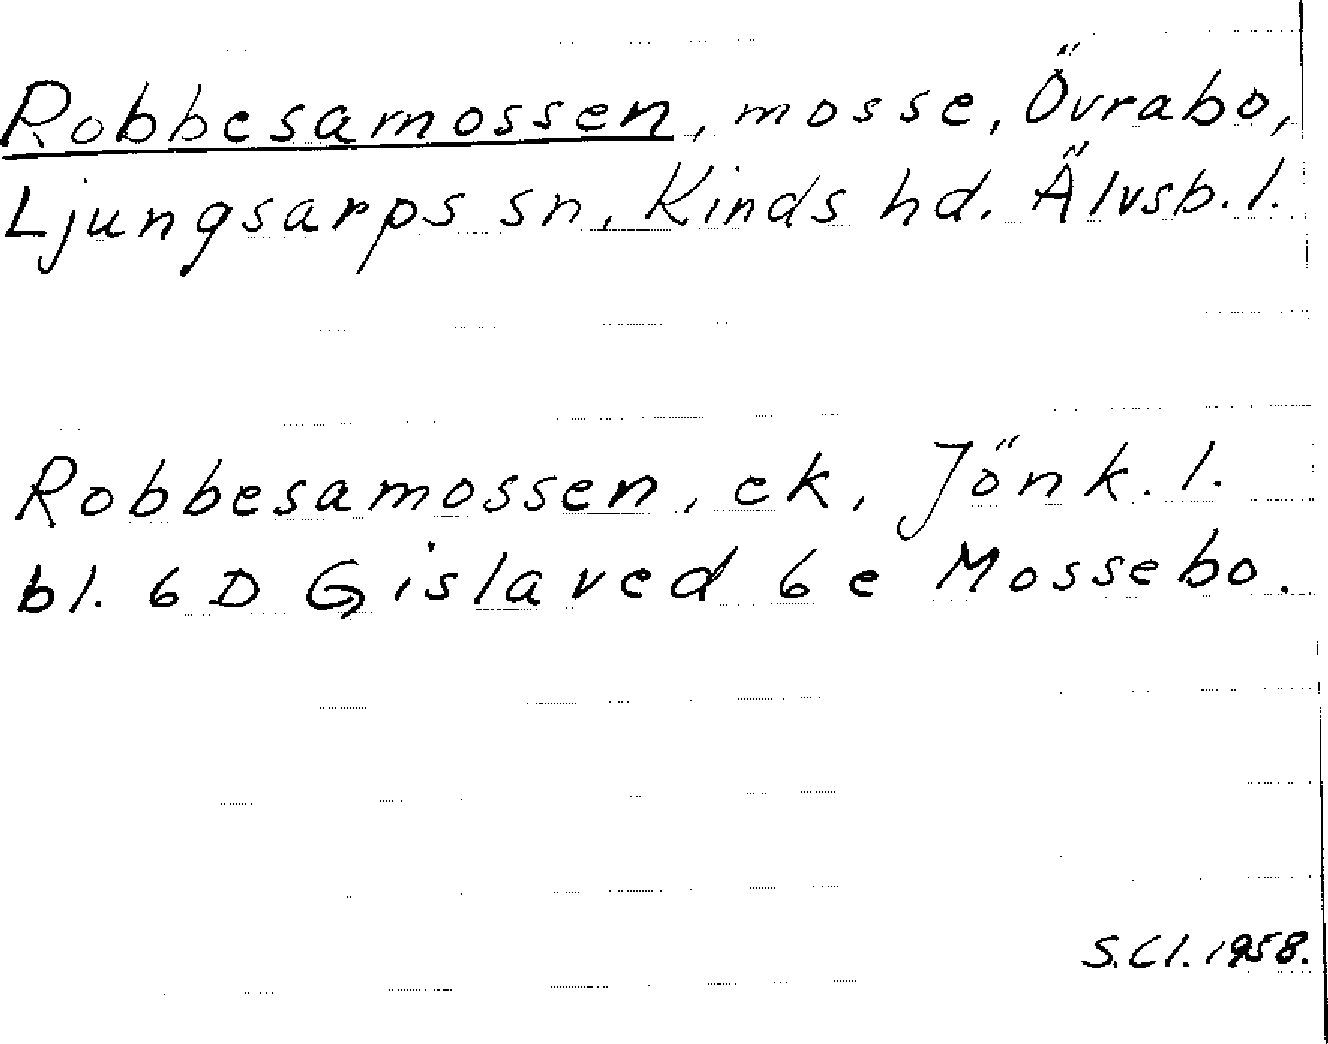 Robbesamossen, mosse, Övrabo,
Ljungsarps sn, Kinds hd. Älvsb. l.
Robbesamossen, ek, Jönk. l.
bl. 6 D Gislaved 6 e Mossebo.
S. Cl. 1958.